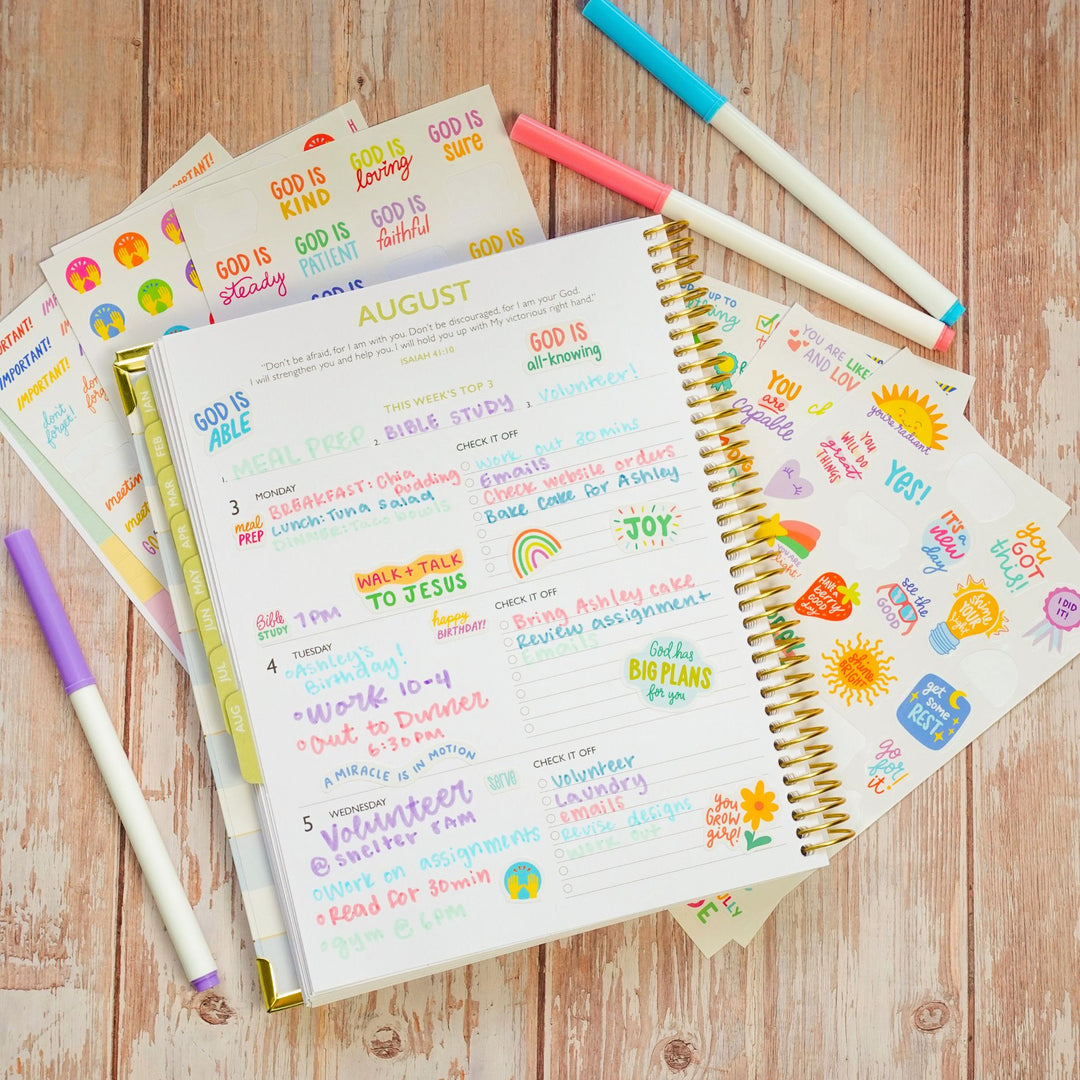 ORTANT!
IMPORTANT!
IMPORTANT!
IMPORTANT!
don't
forget!
meeting
GOD IS
KIND
GOD IS
loving
GOD IS
SURE
GOD IS
steady
GOD IS
PATIENT
GOD IS
faithful
GOD IS
GOD IS
AUGUST
"Don't be afraid, for I am with you. Don't be discouraged, for I am your God.
I will strengthen you and help you. I will hold you up with My victorious right hand."
ISAIAH 41:10
GOD IS
ABLE
GOD IS
all-knowing
THIS WEEK'S TOP 3
1. MEAL PREP
2. BIBLE STUDY
3. Volunteer!
JAN
FEB
MAR
APR
MAY
JUN
JUL
AUG
3 MONDAY
meal
PREP
BREAKFAST: Chia
Pudding
Lunch: Tuna Salad
DINNER: Taco bowls
WALK + TALK
TO JESUS
Bible
STUDY
7PM
happy
BIRTHDAY!
CHECK IT OFF
work out 30 mins
Emails
Check website orders
Bake cake for Ashley
JOY
4 TUESDAY
Ashley's
Birthday!
Work 10-4
Out to Dinner
6:30PM
A MIRACLE IS IN MOTION
serve
CHECK IT OFF
Bring Ashley cake
Review assignment
Emails
God has
BIG PLANS
for you
5 WEDNESDAY
Volunteer
@ shelter 8AM
Work on assignments
Read for 30min
gym @ 6PM
CHECK IT OFF
Volunteer
Laundry
emails
Revise designs
work out
you
GROW
girl!
UP TO
YOU ARE LIKE
AND LOV
YOU
are
capable
you're radiant
YOU
WILL DO
great
THINGS
Yes!
IT'S A
new
day
YOU
GOT
this!
HAVE A
berry
GOOD
day
see the
GOOD
shine
YOUR
light
I DID
IT!
shine
BRIGHT
get
some
REST
go
for
it!